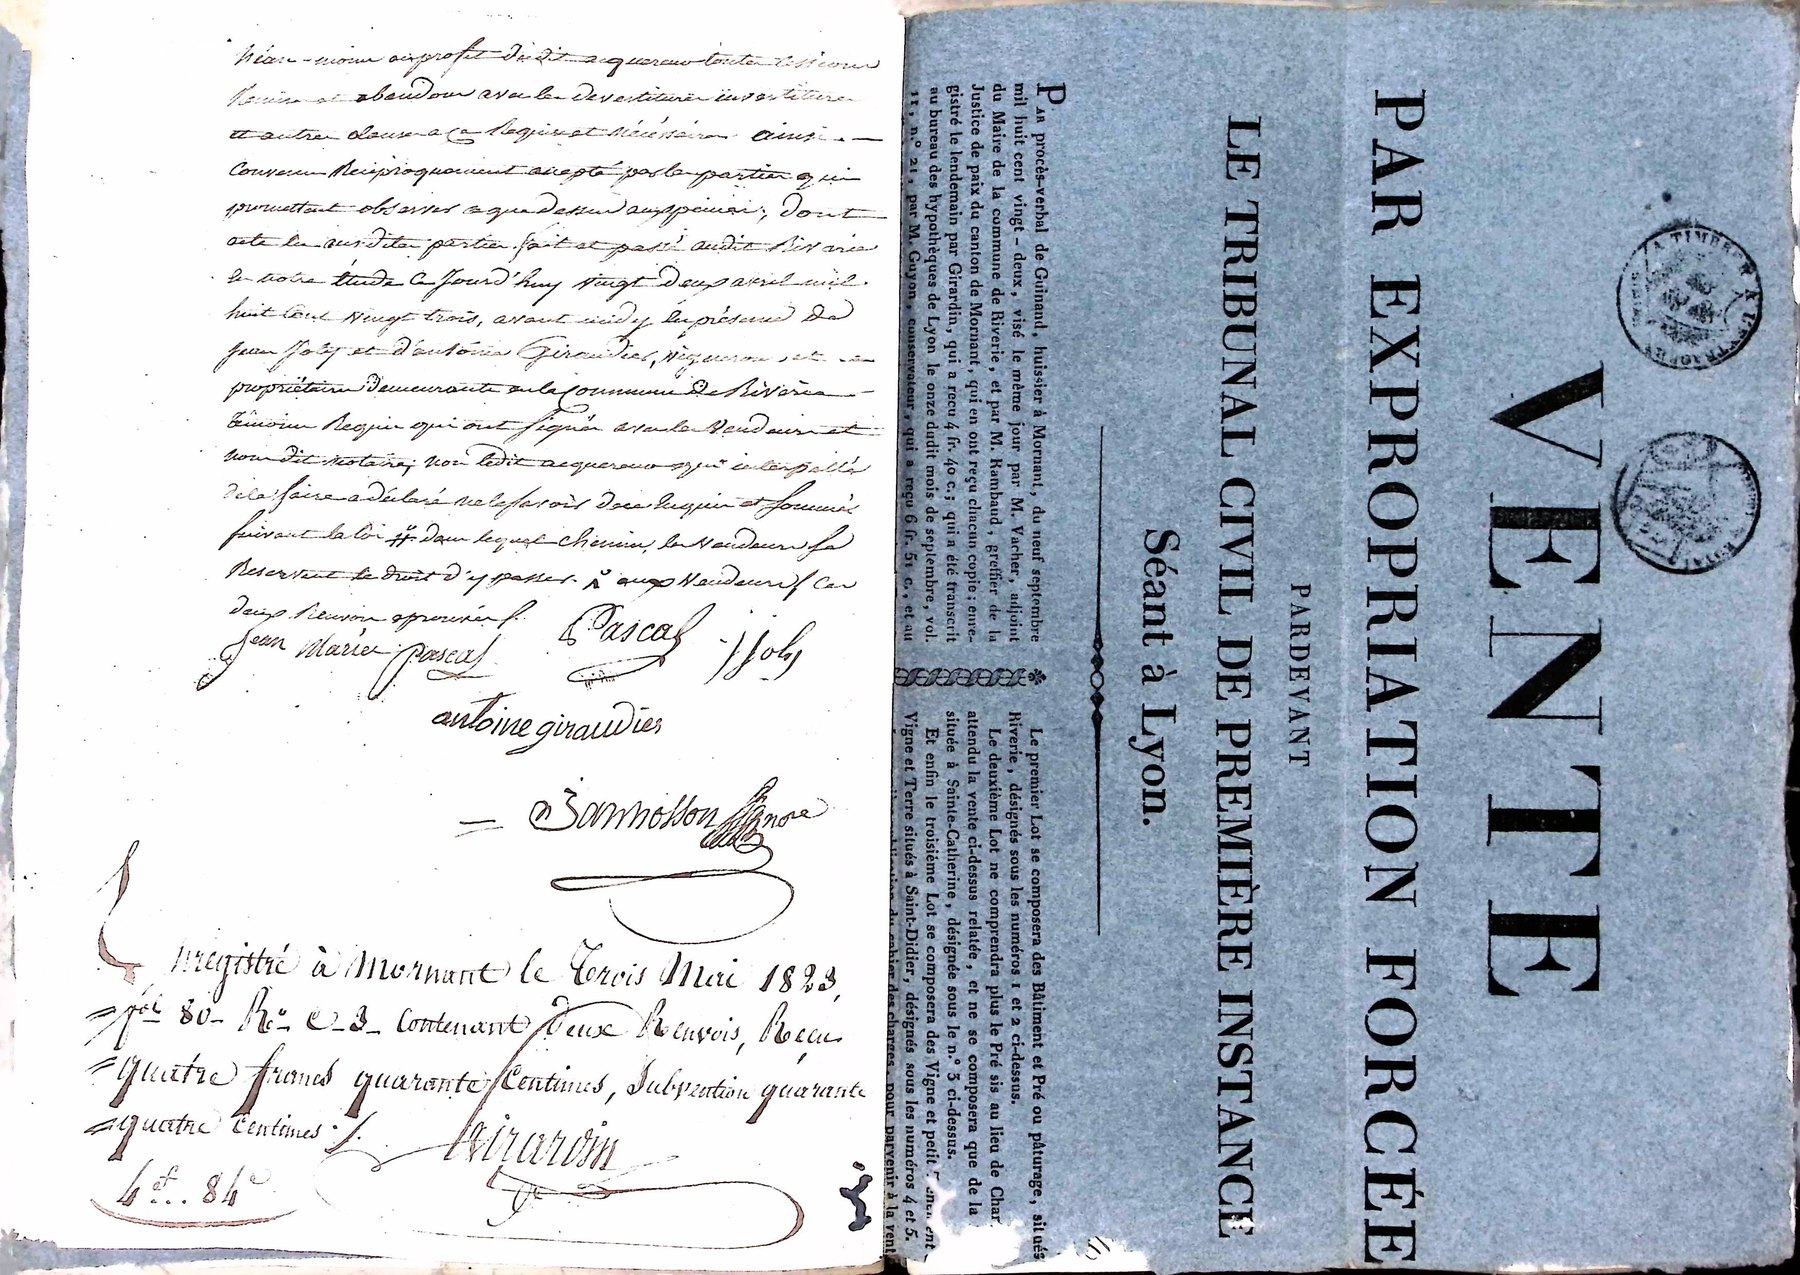 Néan-moins au profit du dit acquereur toutes cessions
Remise et abandon avec les devestitures investitures
et autres clauses a ce Requises et nécéssaires ainsi
Convenu Réciproquement accepté par les parties qui
promettent observer ce que dessus aux peines; dont
acte les susdites parties fait et passé audit Riverie
en notre étude Ce Jourd'huy vingt deux avril mil
huit Cent vingt trois, avant midy En présence de
Jean Joly et d'antoine Giraudier, vigneron, et
propriétaire demeurants en la Commune de Riverie
témoins Requis qui ont signés avec les Vendeurs et
nous dit notaire; non ledit acquereur qui interpellé
de le faire a déclaré ne le savoir de ce Enquis et sommé
suivant la loi # dans lequel chemin les vendeurs se
Reservent le droit d'y passer. aux Vendeurs Ces
deux Renvois aprouvés
Jean Marie Pascal
Pascal
J Joly
antoine giraudier
Bannosson nore
Enregistré à Mornant le Trois Mai 1823,
fol 80 Ro C 3 Contenant Deux Renvois, Reçu
quatre francs quarante Centimes, Subvention quarante
quatre Centimes
Girardin
4f.. 84c
VENTE
PAR EXPROPRIATION FORCÉE
PARDEVANT
LE TRIBUNAL CIVIL DE PREMIÈRE INSTANCE
Séant à Lyon.
PAR procès-verbal de Guinand, huissier à Mornant, du neuf septembre
mil huit cent vingt-deux, visé le même jour par M. Vacher, adjoint
du Maire de la commune de Riverie, et par M. Rambaud, greffier de la
Justice de paix du canton de Mornant, qui en ont reçu chacun copie; enre-
gistré le lendemain par Girardin, qui a reçu 4 fr. 40 c.; qui a été transcrit
au bureau des hypothèques de Lyon le onze dudit mois de septembre, vol.
11, n.º 21, par M. Guyon, conservateur, qui a reçu 6 fr. 51 c., et au
Le premier Lot se composera des Bâtiment et Pré ou pâturage, situés
Riverie, désignés sous les numéros 1 et 2 ci-dessus.
Le deuxième Lot ne comprendra plus le Pré sis au lieu de Char
attendu la vente ci-dessus relatée, et ne se composera que de la
située à Sainte-Catherine, désignée sous le n.º 3 ci-dessus.
Et enfin le troisième Lot se composera des Vigne et petit
Vigne et Terre situés à Saint-Didier, désignés sous les numéros 4 et 5.
publication du cahier des charges, pour parvenir à la vent
A TIMBRER A L'EXTRAORD